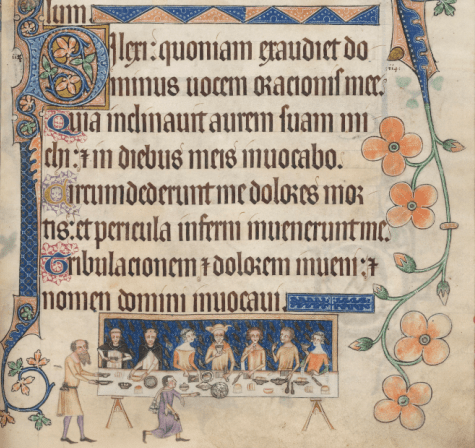 lum.
Dilexi: quoniam exaudiet do
minus uocem oracionis mee.
Quia inclinauit aurem suam mi
chi: ⁊ in diebus meis inuocabo.
Circumdederunt me dolores mor
tis: et pericula inferni inuenerunt me.
Tribulacionem ⁊ dolorem inueni: ⁊
nomen domini inuocaui.